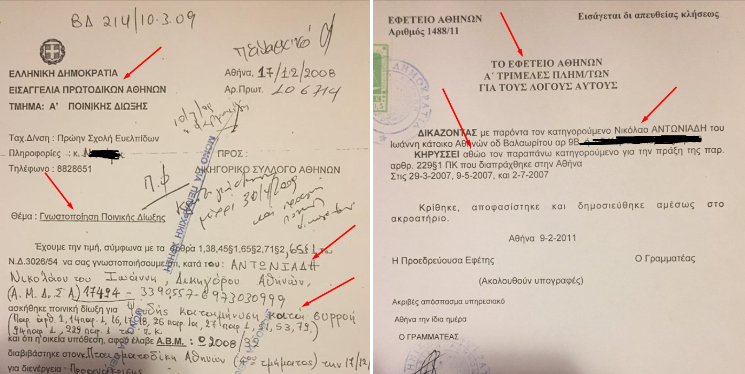 ΒΔ 214/10.3.09
ΕΛΛΗΝΙΚΗ ΔΗΜΟΚΡΑΤΙΑ
ΕΙΣΑΓΓΕΛΙΑ ΠΡΩΤΟΔΙΚΩΝ ΑΘΗΝΩΝ
ΤΜΗΜΑ: Α' ΠΟΙΝΙΚΗΣ ΔΙΩΞΗΣ
Αθήνα, 17/12/2008
Αρ.Πρωτ. 206714
Ταχ.Δ/νση : Πρώην Σχολή Ευελπίδων
Πληροφορίες : κ.
Τηλέφωνο : 8828651
ΠΡΟΣ :
ΔΙΚΗΓΟΡΙΚΟ ΣΥΛΛΟΓΟ ΑΘΗΝΩΝ
Θέμα : Γνωστοποίηση Ποινικής Δίωξης
Έχουμε την τιμή, σύμφωνα με τα άρθρα 1,38,45§1,65§2,71§2,
Ν.Δ.3026/54 να σας γνωστοποιήσουμε ότι, κατά του : ΑΝΤΩΝΙΑΔΗ
Νικολάου του Ιωάννη, Δικηγόρου Αθηνών,
(Α.Μ.Δ.Σ.Α) 17494 - 3390557-6973030999
ασκήθηκε ποινική δίωξη για ψευδής καταμήνυση κατά συρροή
και ότι η οικεία υπόθεση, αφού έλαβε Α.Β.Μ.: 2008/
διαβιβάστηκε στον Πταισματοδίκη Αθηνών τμήματος) την 17/12/
για διενέργεια :
ΕΦΕΤΕΙΟ ΑΘΗΝΩΝ
Αριθμός 1488/11
Εισάγεται δι απευθείας κλήσεως
ΤΟ ΕΦΕΤΕΙΟ ΑΘΗΝΩΝ
Α΄ ΤΡΙΜΕΛΕΣ ΠΛΗΜ/ΤΩΝ
ΓΙΑ ΤΟΥΣ ΛΟΓΟΥΣ ΑΥΤΟΥΣ
ΔΙΚΑΖΟΝΤΑΣ με παρόντα τον κατηγορούμενο Νικόλαο ΑΝΤΩΝΙΑΔΗ του
Ιωάννη κάτοικο Αθηνών οδ Βαλαωρίτου αρ 9Β
ΚΗΡΥΣΣΕΙ αθώο τον παραπάνω κατηγορούμενο για την πράξη της παρ.
αρθρ. 229§1 ΠΚ που διαπράχθηκε στην Αθήνα
Στις 29-3-2007, 9-5-2007, και 2-7-2007
Κρίθηκε, αποφασίστηκε και δημοσιεύθηκε αμέσως στο
ακροατήριο.
Αθήνα 9-2-2011
Η Προεδρεύουσα Εφέτης
Ο Γραμματέας
(Ακολουθούν υπογραφές)
Ακριβές απόσπασμα υπηρεσιακό
Αθήνα την ίδια ημέρα
Ο ΓΡΑΜΜΑΤΕΑΣ